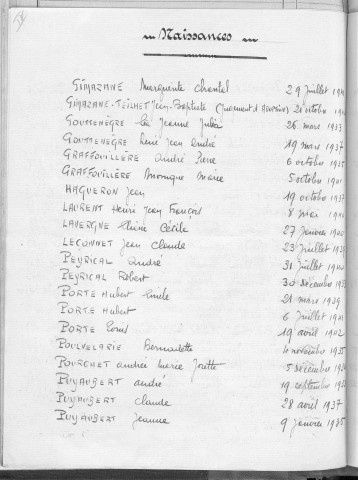 Naissances
GIMAZANE Marguerite Chantal 29 Juillet
GIMAZANE-TEILHET Jean-Baptiste (Jugement d'Adoption) 21 octobre
GOUTTENÈGRE Léa Jeanne Julia 26 mars 1933
GOUTTENÈGRE René Jean André 19 mars 1937
GRAFFOUILLÈRE André Pierre 6 octobre 1935
GRAFFOUILLÈRE Monique Marie 5 octobre 1941
HAGUERON Jean 19 octobre 1937
LAURENT Henri Jean François 8 mai
LAVERGNE Cécile 27 janvier 1940
LECONNET Jean Claude 23 Juillet
PEYRICAL André 31 Juillet
PEYRICAL Robert 30 décembre
PORTE Hubert Emile 21 mars 1939
PORTE Hubert 6 Juillet 1941
PORTE 19 avril 1942
POULVELARIE Bernadette novembre 1935
POURCHET andrée Marie Josette 5 décembre
PUYAUBERT andré 19 septembre
PUYAUBERT Claude 28 avril 1937
PUYAUBERT Jeanne 9 Janvier 1935